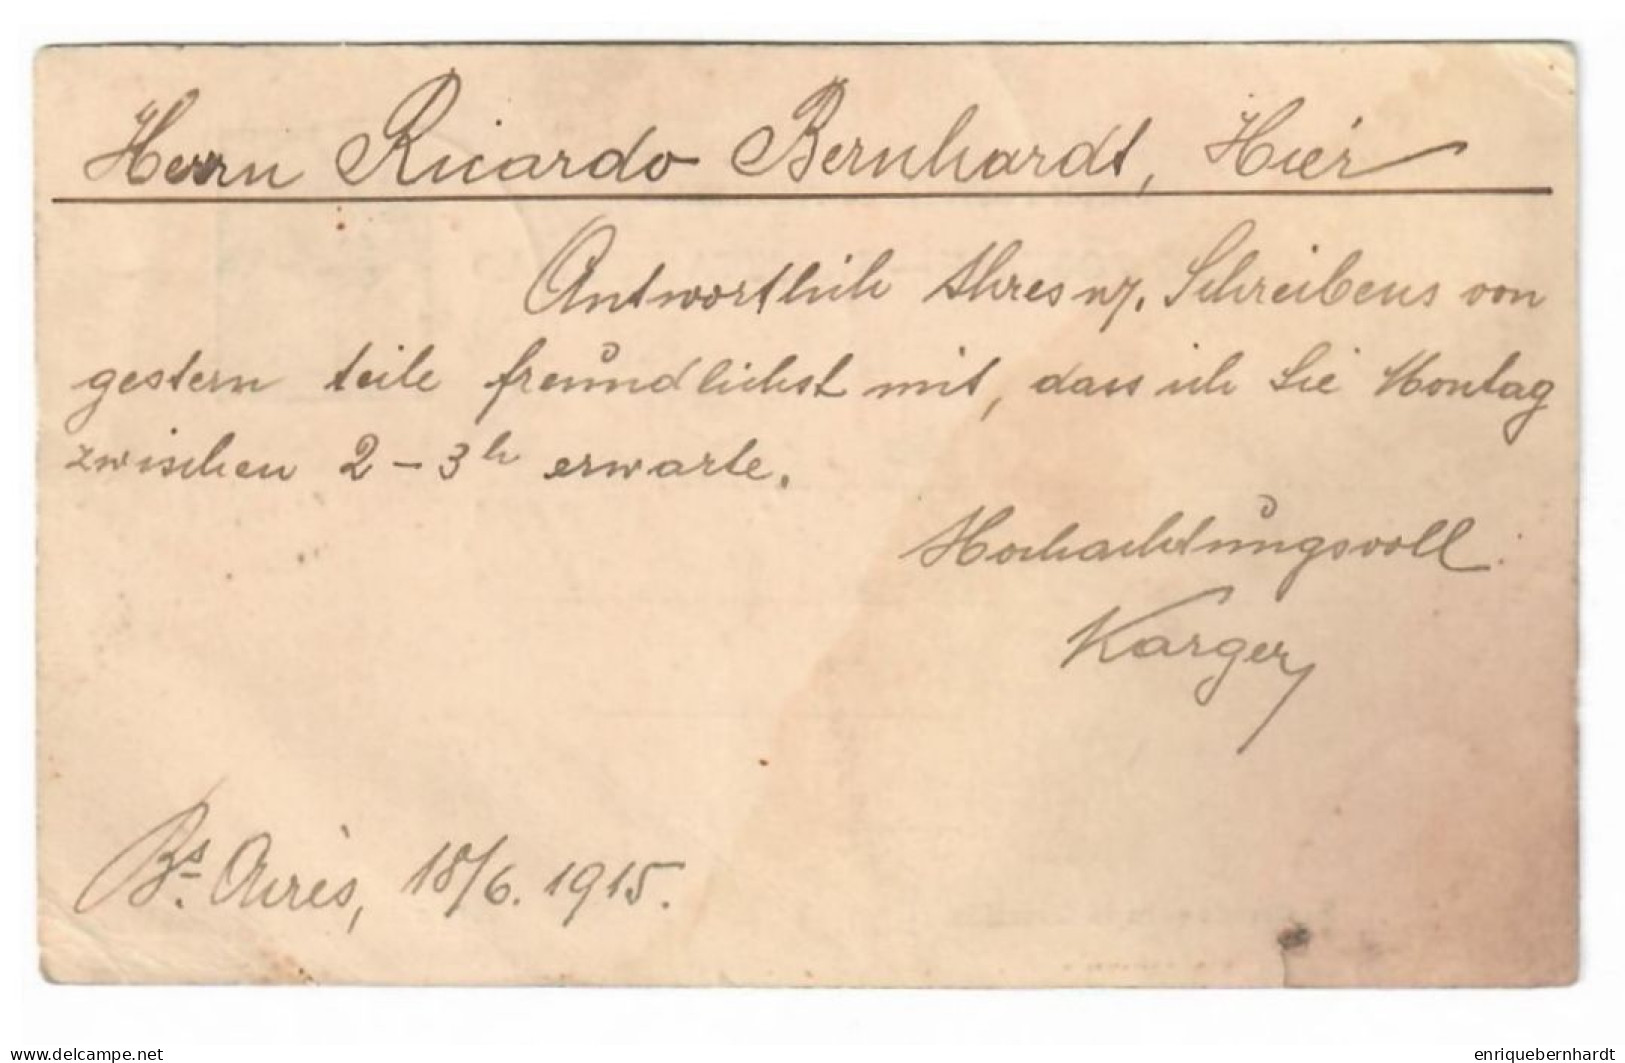 Herrn Ricardo Bernhardt, Hier
Antwortlich Ihres w/. Schreibens von
gestern teile freundlichst mit, dass ich Sie Montag
zwischen 2-3h erwarte.
Hochachtungsvoll.
Karger
Bs. Aires, 18/6. 1915.
www.delcampe.net
enriquebernhardt